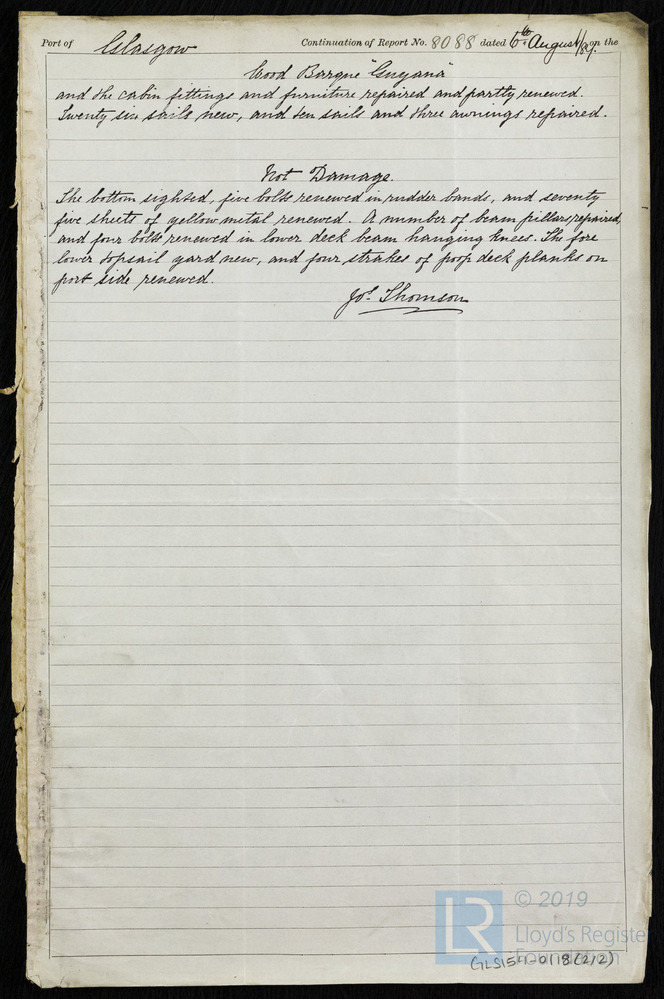 Port of Glasgow Continuation of Report No. 8088 dated 6th August/89. on the
Wood Barque "Guyana"
and the cabin fittings and furniture repaired and partly renewed.
Twenty six sails new, and ten sails and three awnings repaired.
Not Damage.
The bottom sighted, five bolts renewed in rudder bands, and seventy
five sheets of yellow metal renewed. A number of beam pillars repaired,
and four bolts renewed in lower deck beam hanging knees. The fore
lower topsail yard new, and four strakes of poop deck planks on
port side renewed.
Jos. Thomson
LR
© 2019
Lloyd's Register
Foundation
GLS154-0118(2/2)